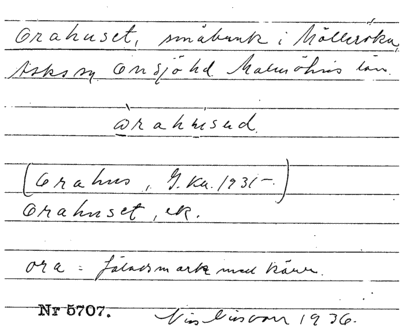 Orahuset, småbruk i Mölleröka
Asks sn Onsjö hd Malmöhus län.
òrahused
(Orahus, G.ka. 1931-)
Orahuset, ek.
ora = fäladsmark med kärr.
Nr 5707. Nils 1936.